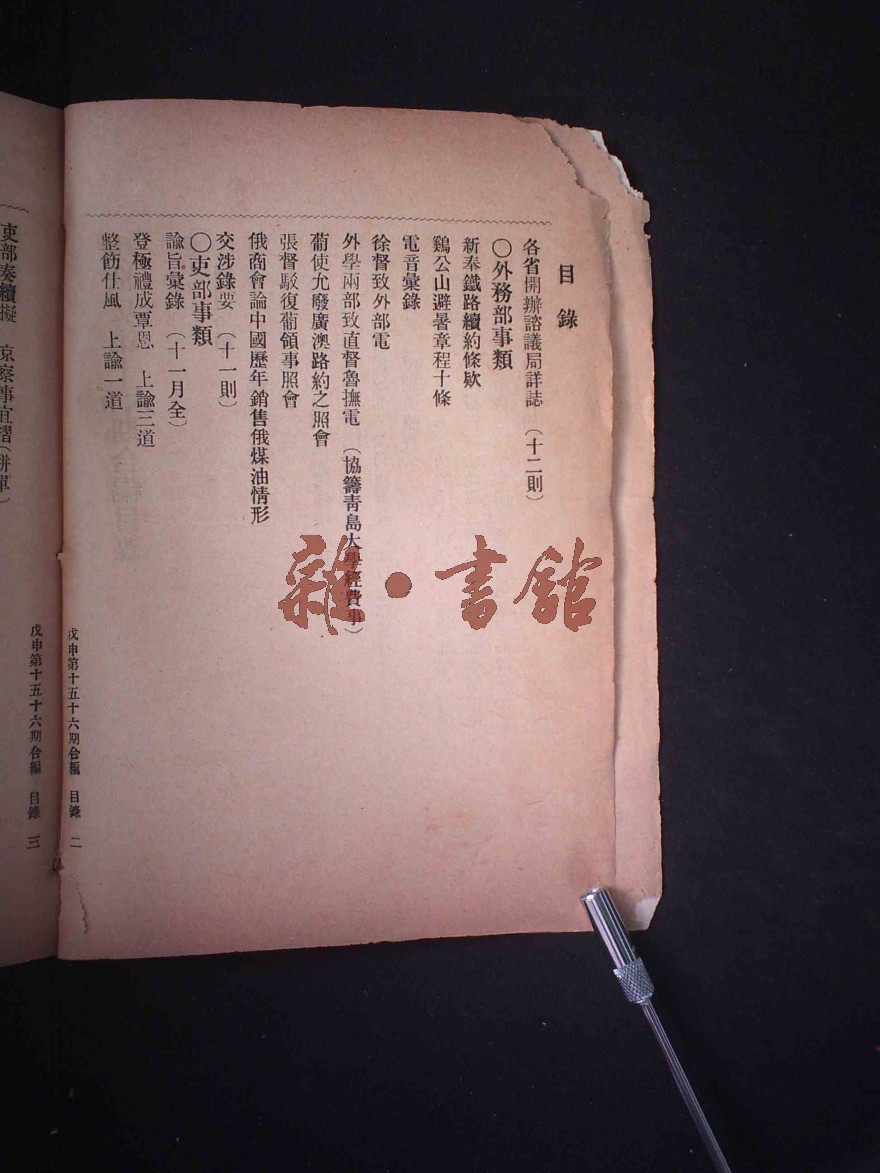 目錄
各省開辦諮議局詳誌 (十二則)
〇外務部事類
新奉鐵路續約條欵
鷄公山避暑章程十條
電音彙錄
徐督致外部電
外學兩部致直督魯撫電 (協籌青島大學經費事)
葡使允廢廣澳路約之照會
張督駁復葡領事照會
俄商會論中國歷年銷售俄煤油情形
交涉錄要 (十一則)
〇吏部事類
諭旨彙錄 (十一月全)
登極禮成覃恩 上諭三道
整飭仕風 上諭一道
戊申第十五十六期合編 目錄 二
戊申第十五十六期合編 目錄 三
吏部奏續擬 京察事宜摺(併單)
雜·書館